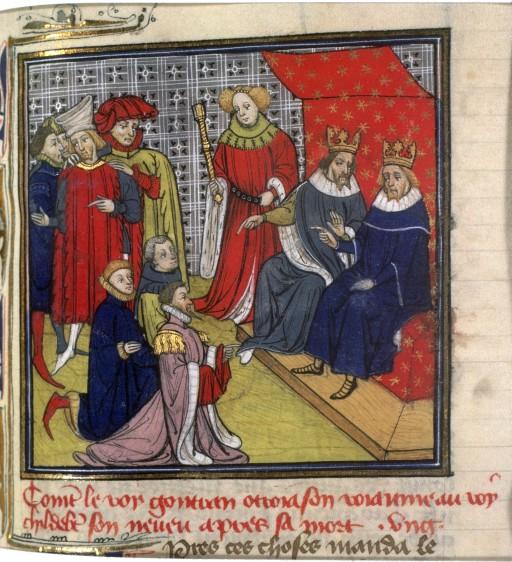 Com̄t le roy gontran ottroia son roiaume au roy
childebert son neueu apres sa mort . vng.
Pres ces choses manda le